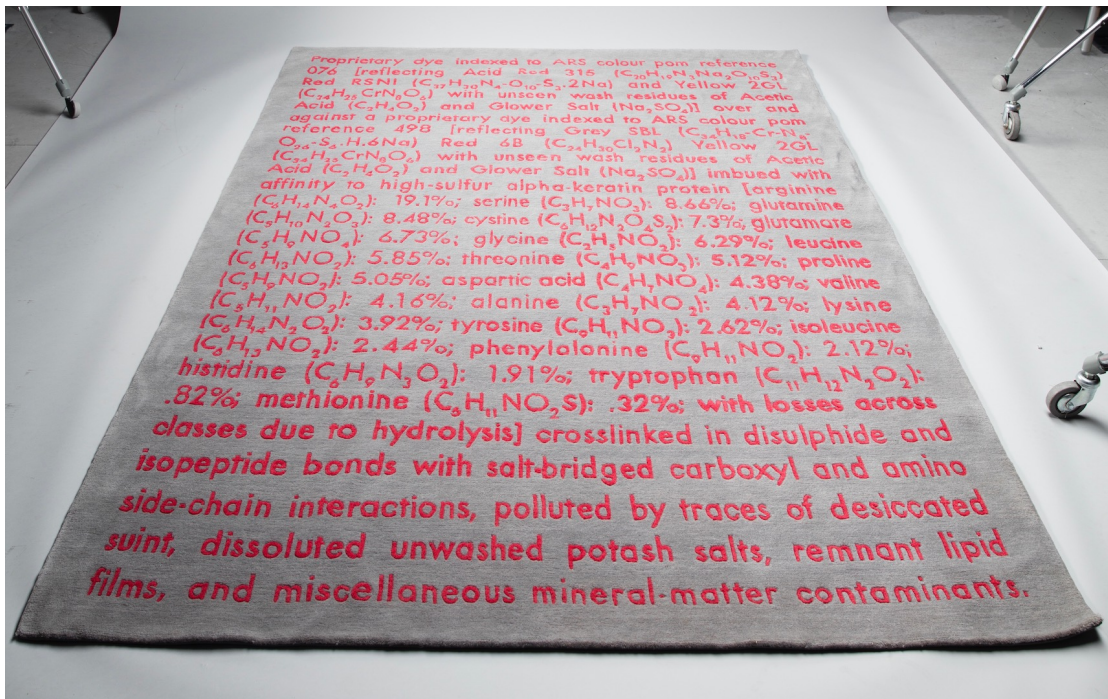 Proprietary dye indexed to ARS colour pom reference
076 [reflecting Acid Red 315 (C₃₀H₁₉N₃Na₂O₁₀S₃)
Red RSNI (C₃₇H₃₀N₄-O₁₀-S₃.2Na) and Yellow 2GL
(C₃₄H₂₅CrN₈O₆) with unseen wash residues of Acetic
Acid (C₂H₄O₂) and Glower Salt (Na₂SO₄)] over and
against a proprietary dye indexed to ARS colour pom
reference 498 [reflecting Grey SBL (C₃₄H₁₈-Cr-N₈-
O₂₆-S₆.H.6Na) Red 6B (C₂₄H₂₀Cl₂N₂) Yellow 2GL
(C₃₄H₂₅CrN₈O₆) with unseen wash residues of Acetic
Acid (C₂H₄O₂) and Glower Salt (Na₂SO₄)] imbued with
affinity to high-sulfur alpha-keratin protein [arginine
(C₆H₁₄N₄O₂): 19.1%; serine (C₃H₇NO₃): 8.66%; glutamine
(C₅H₁₀N₂O₃): 8.48%; cystine (C₆H₁₂N₂O₄S₂): 7.3%; glutamate
(C₅H₉NO₄): 6.73%; glycine (C₂H₅NO₂): 6.29%; leucine
(C₆H₁₃NO₂): 5.85%; threonine (C₄H₉NO₃): 5.12%; proline
(C₅H₉NO₂): 5.05%; aspartic acid (C₄H₇NO₄): 4.38%; valine
(C₅H₁₁NO₂): 4.16%; alanine (C₃H₇NO₂): 4.12%; lysine
(C₆H₁₄N₂O₂): 3.92%; tyrosine (C₉H₁₁NO₃): 2.62%; isoleucine
(C₆H₁₃NO₂): 2.44%; phenylalanine (C₉H₁₁NO₂): 2.12%;
histidine (C₆H₉N₃O₂): 1.91%; tryptophan (C₁₁H₁₂N₂O₂):
.82%; methionine (C₅H₁₁NO₂S): .32%; with losses across
classes due to hydrolysis] crosslinked in disulphide and
isopeptide bonds with salt-bridged carboxyl and amino
side-chain interactions, polluted by traces of desiccated
suint, dissoluted unwashed potash salts, remnant lipid
films, and miscellaneous mineral-matter contaminants.